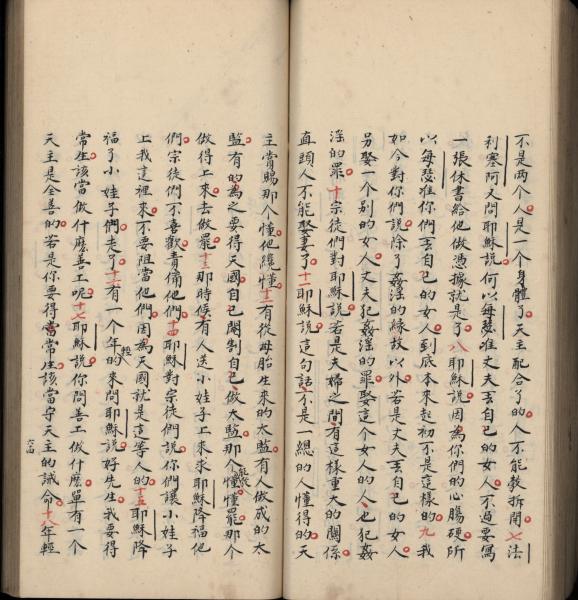 不是两个人是一个身體了天主配合了的人不能教拆開七法
利塞阿又問耶穌說何以每瑟准丈夫丟自己的女人不過要寫
一張休書給他做憑據就是了八耶穌說因為你們的心腸硬所
以每瑟准你們丟自己的女人到底本来起初不是這樣的九我
如今對你們說除了姦淫的縁故以外若是丈夫丟自己的女人
另娶一个別的女人丈夫犯姦淫的罪娶這个女人的人也犯姦
淫的罪十宗徒們對耶穌說若是夫婦之間有這樣重大的關係
直頭人不能娶妻了十一耶穌說這句話不是一總的人懂得的天
主賞賜那个懂他纔懂十二有從母胎生来的太監有人做成的太
監有的為之要得天國自己閹割自己做太監那个懂懂罷那个
做得上来去做罷十三那時候有人送小娃子上来求耶穌降福他
們宗徒們不喜歡責偹他們十四耶穌對宗徒們說你們讓小娃子
上我這裡来不要阻當他們因為天國就是這等人的十五耶穌降
福了小娃子們走了十六有一个年輕的来問耶穌說好先生我要得
常生該當做什麽善工呢十七耶穌說你問善工做什麽單有一个
天主是全善的若是你要得當常生該當守天主的誡命十八年輕
六四